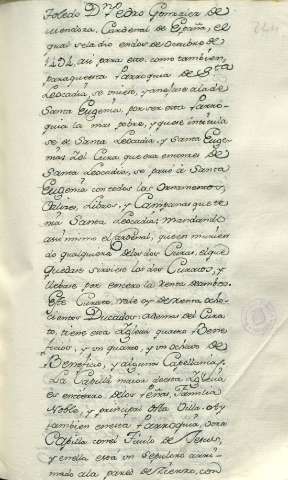 Toledo D.n Pedro Gonzalez de
mendoza, Cardenal de España, el
qual se la dio en dos de Octubre de
1494, asi para esto, como tambien,
para que esta Parroquia de S.ta
Leocadia, se uniese, y anejase a la de
Santa Eugenia, por ser esta Parro-
quia la mas pobre, y que se intitula
se de Santa Leocadia, y Santa Euge-
nia: el Cura, que era entonces de
Santa Leocadia, se pasó á Santa
Eugenia con todos los Ornamentos,
Calizes, Libros, y Campanas que te-
nia Santa Leocadia; mandando
asi mismo el Cardenal, que en murien
do qualquiera de los dos Curas, el que
quedase sirviese los dos Curatos, y
llebase por entero la renta de ambos.
Este Curato, vale oy de renta ocho-
cientos Ducados: ademas del Cura-
to, tiene esta Yglesia quatro Bene-
ficios, y un quarto, y un ochavo de
Beneficio, y algunas Capellanias.
La Capilla maior de esta Yglesia
es entierro de los Familia
Noble, y principal de esta Villa. Ay
tambien en esta Parroquia, otra
Capilla con el Titulo de Jesus,
y en ella está un Sepulcro arri-
mado a la pared de lienzo, con